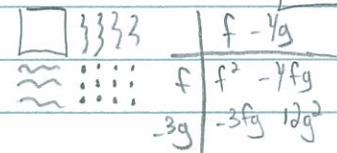 f - 4g
f f² - 4fg
-3g -3fg 12g²